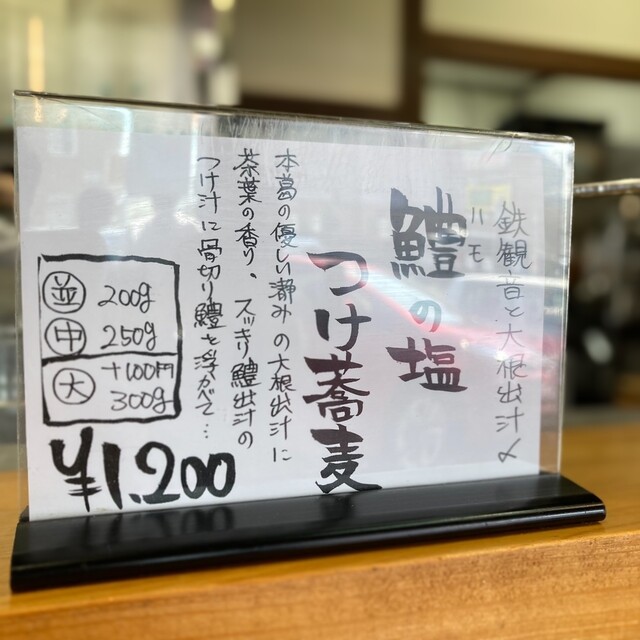 鉄観音と大根出汁〆
ハモ
鱧の塩
つけ蕎麦
本葛の優しい滲みの大根出汁に
茶葉の香り、スッキリ鱧出汁の
つけ汁に骨切り鱧を浮かべて…
並 200g
中 250g
大 +100円
300g
¥1.200